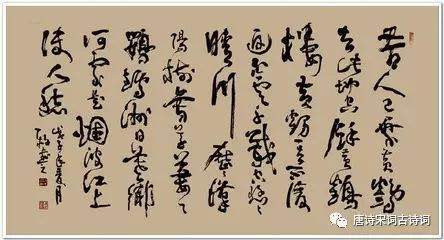 昔人已乘黃鶴
去此地空餘黃鶴
樓黃鶴一去不復
返白雲千載空悠々
晴川歷々漢
陽樹春草萋々
鸚鵡洲日暮鄉
何處是煙波江上
使人愁
戊子年
唐诗宋词古诗词